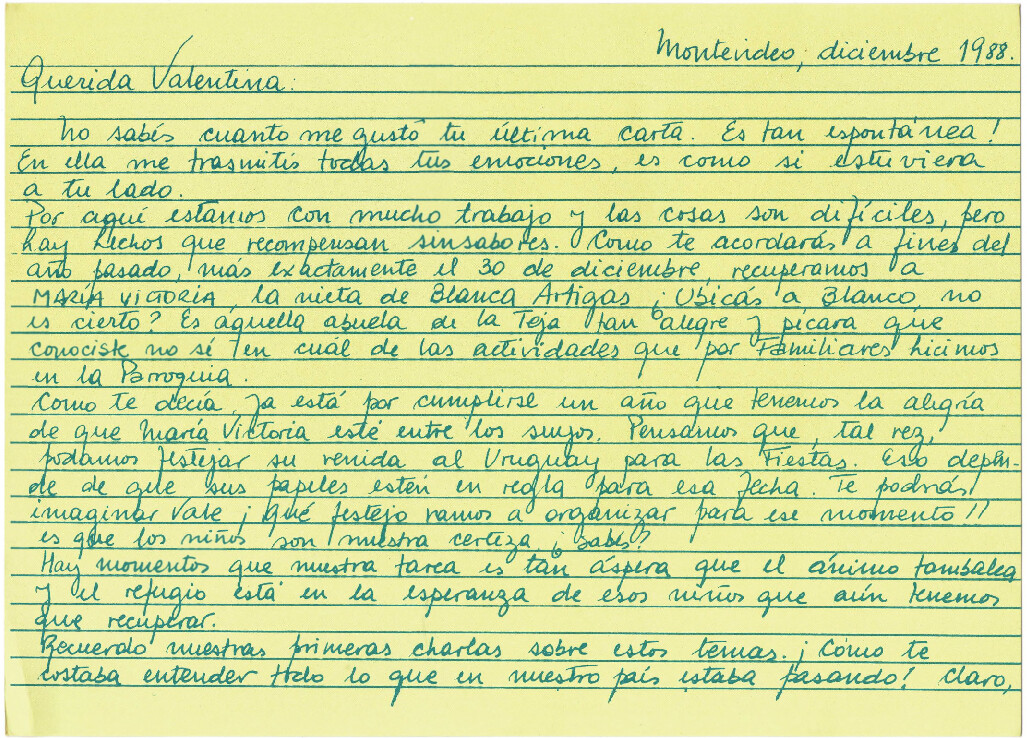 Montevideo, diciembre 1988.
Querida Valentina:
No sabés cuanto me gustó tu última carta. Es tan espontánea!
En ella me trasmitís todas tus emociones, es como si estuviera
a tu lado.
Por aquí estamos con mucho trabajo y las cosas son difíciles, pero
hay hechos que recompensan sinsabores. Como te acordarás a fines del
año pasado, más exactamente el 30 de diciembre, recuperamos a
MARÍA VICTORIA, la nieta de Blanca Artigas ¿Ubicás a Blanca, no
es cierto? Es aquella abuela de la Teja tan alegre y pícara que
conociste no sé en cuál de las actividades que por Familiares hicimos
en la Parroquia.
Como te decía, ya está por cumplirse un año que tenemos la alegría
de que María Victoria esté entre los suyos. Pensamos que, tal vez,
podamos festejar su venida al Uruguay para las Fiestas. Eso depen-
de de que sus papeles estén en regla para esa fecha. Te podrás
imaginar Vale ¡qué festejo vamos a organizar para ese momento!!
es que los niños son nuestra certeza ¿sabés?
Hay momentos que nuestra tarea es tan áspera que el ánimo tambalea
y el refugio está en la esperanza de esos niños que aún tenemos
que recuperar.
Recuerdo nuestras primeras charlas sobre estos temas. ¡Cómo te
costaba entender todo lo que en nuestro país estaba pasando! Claro,